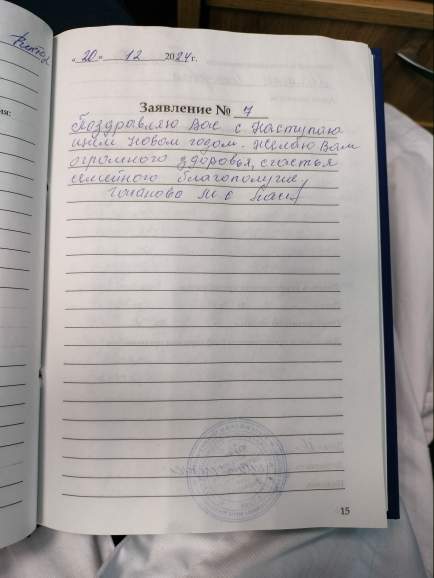 «20» 12 2024 г.
Заявление № 7
Поздравляю Вас с наступаю
щим Новом годом. Желаю Вам
огромного здоровья, счастья
семейного благополучие,
15